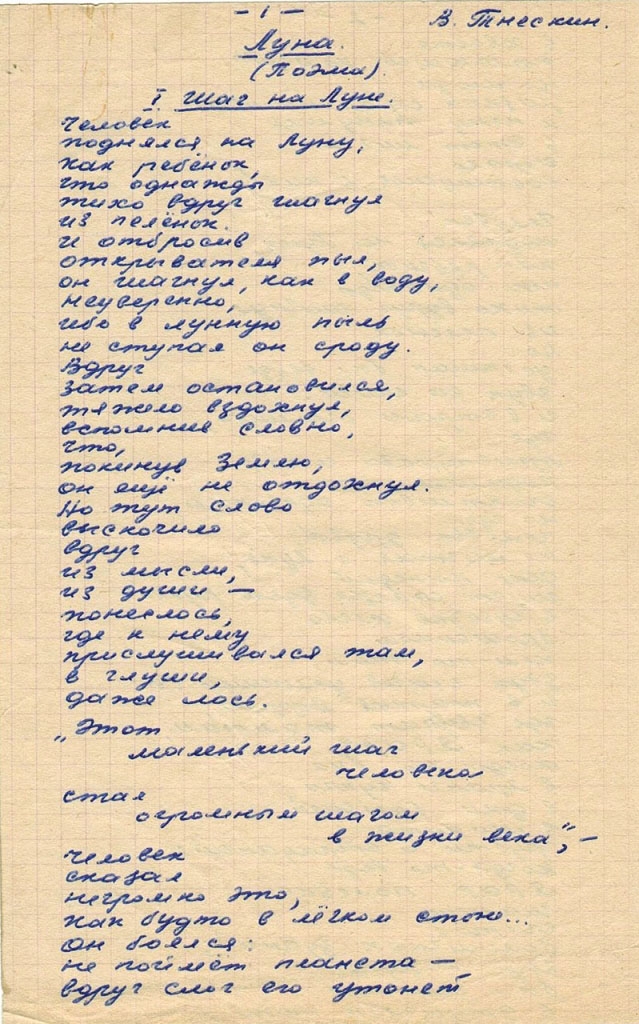 – 1 –
В. Тнескин.
Луна.
(Поэма).
I Шаг на Луне.
Человек
поднялся на Луну,
как ребёнок,
что однажды
тихо вдруг шагнул
из пелёнок.
И отбросив
открывателя пыл,
он шагнул, как в воду,
неуверенно,
ибо в лунную пыль
не ступал он сроду.
Вдруг
затем остановился,
тяжело вздохнул,
вспомнив словно,
что,
покинув Землю,
он ещё не отдохнул.
Но тут слово
выскочило
вдруг
из мысли,
из души —
понеслось,
где к нему
прислушивался там,
в глуши,
даже лось.
„Этот
маленький шаг
человека
стал
огромным шагом
в жизни века", —
человек
сказал
негромко это,
как будто в лёгком стоне...
Он боялся:
не поймёт планета —
вдруг слог его утонет